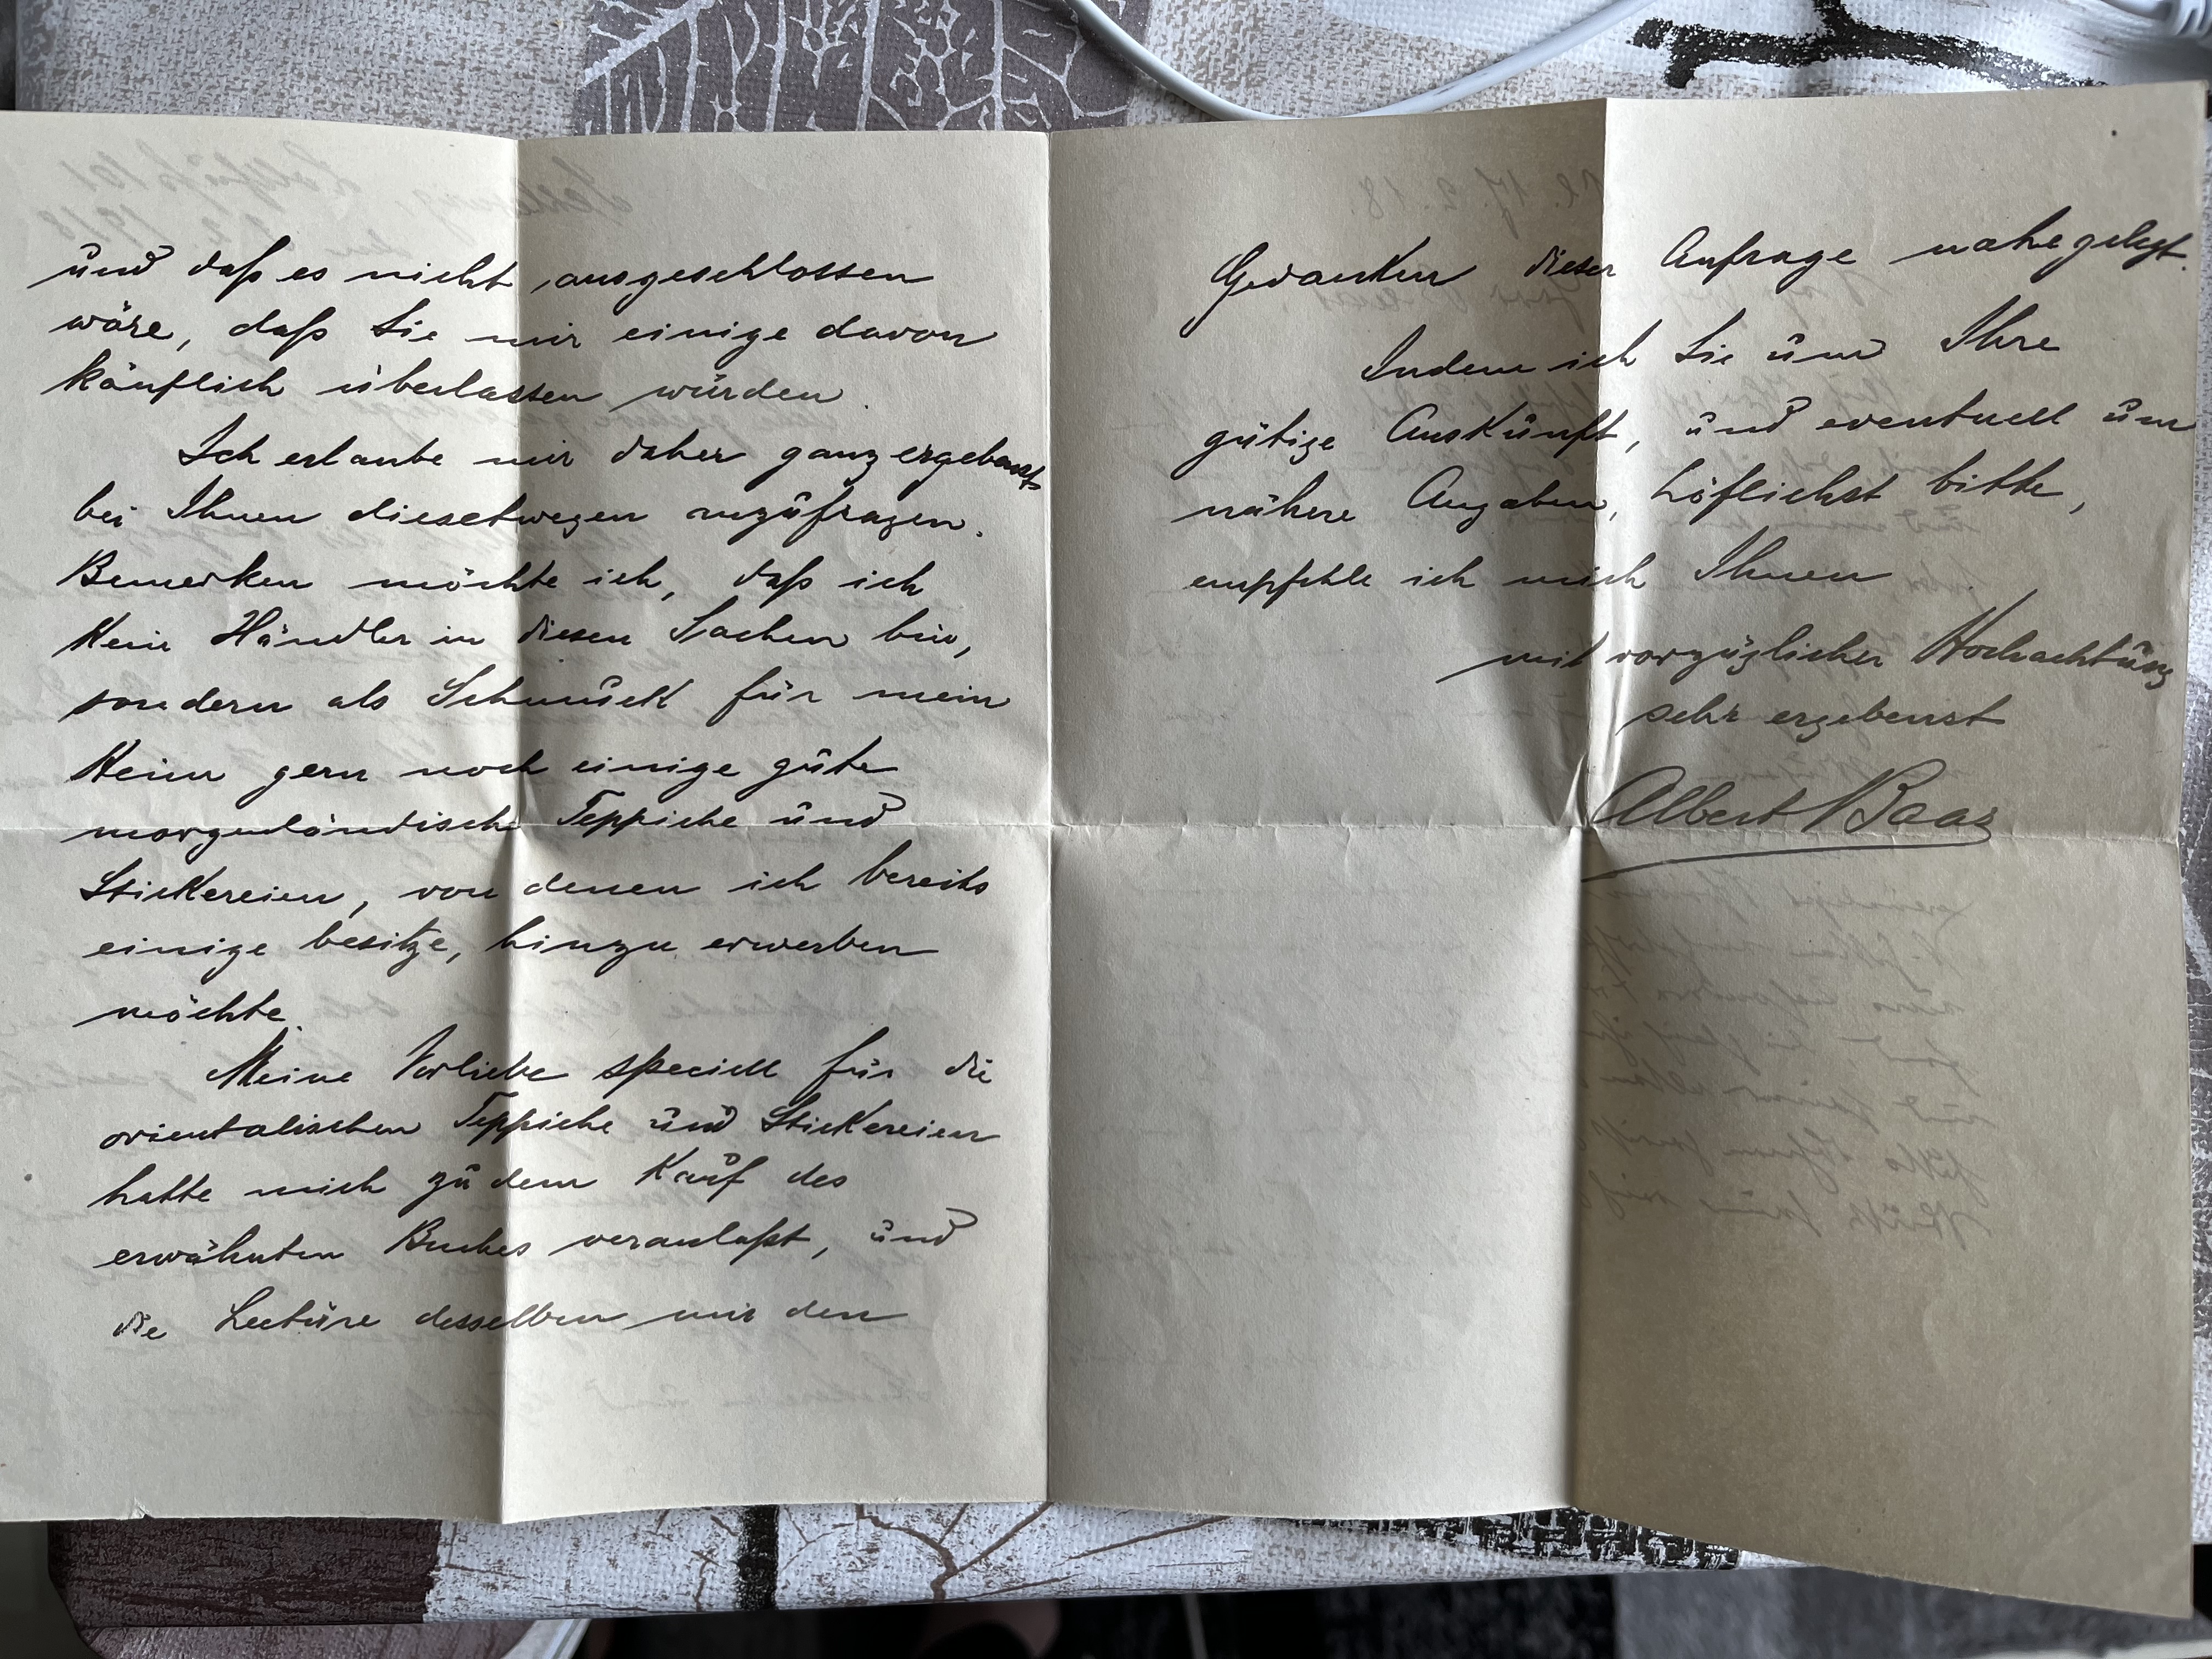 und daß es nicht ausgeschlossen
wäre, daß Sie mir einige davon
käuflich überlassen würden.
Ich erlaube mir daher ganz ergebenst
bei Ihnen diesetwegen anzufragen.
Bemerken möchte ich, daß ich
kein Händler in diesen Sachen bin,
sondern als Schmuck für mein
Heim gern noch einige gute
morgenländische Teppiche und
Stickereien, von denen ich bereits
einige besitze, hinzu erwerben
möchte.
Meine Vorliebe speciell für die
orientalischen Teppiche und Stickereien
hatte mich zu dem Kauf des
erwähnten Buches veranlaßt, und
die Lectüre desselben mir den
Gedanken dieser Anfrage nahegelegt.
Indem ich Sie um Ihre
gütige Auskunft, und eventuell um
nähere Angaben, höflichst bitte,
empfehle ich mich Ihnen
mit vorzüglicher Hochachtung
sehr ergebenst
Albert Baas